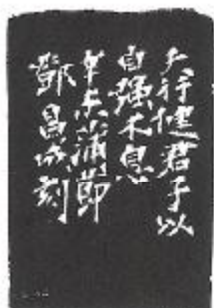 天行健君子以
自强不息
辛未蒲節
鄧昌成刻